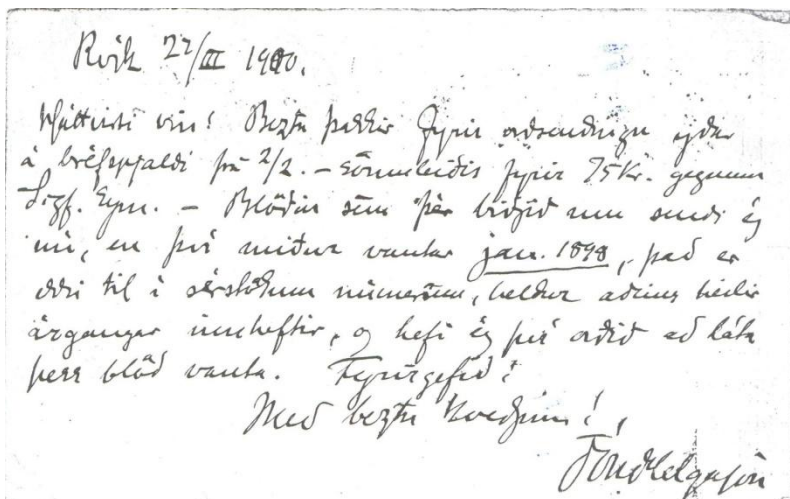 Rvík 22/III 1900.
Háttvirti vin! Beztu þakkir fyrir orðsendingu yðar
á bréfspjaldi frá 2/2. – Sömuleiðis fyrir 75 Kr. gegnum
Sigf. Eym. – Blöðin sem þér biðjið um sendi ég
nú, en því miður vantar jan. 1898, það er
ekki til í sérstökum númerum, heldur aðeins heilir
árgangar innheftir, og hefi ég því orðið að láta
þess blöð vanta. Fyrirgefið!
Með beztu kveðjum!
Jón Helgason